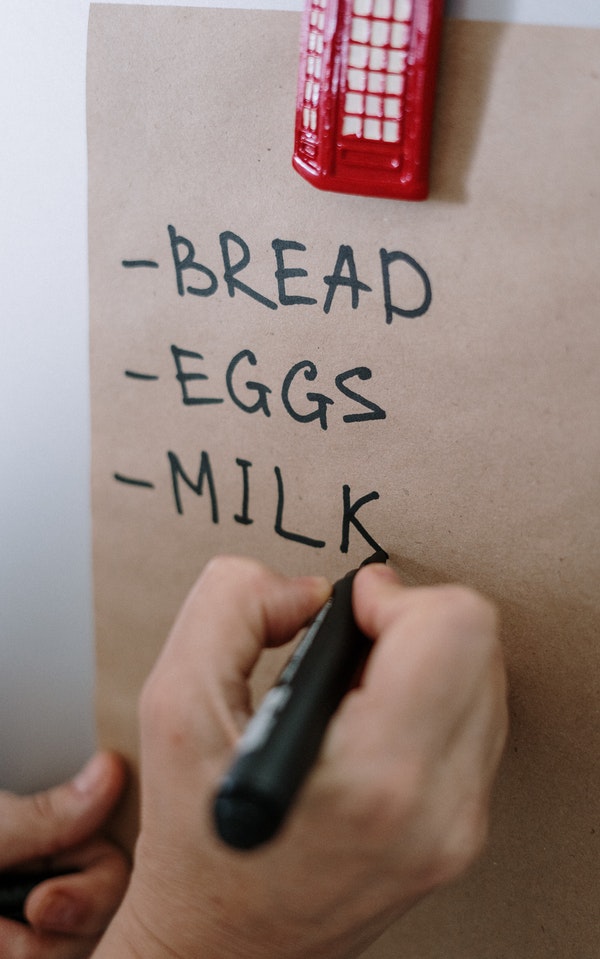 -BREAD
-EGGS
-MILK